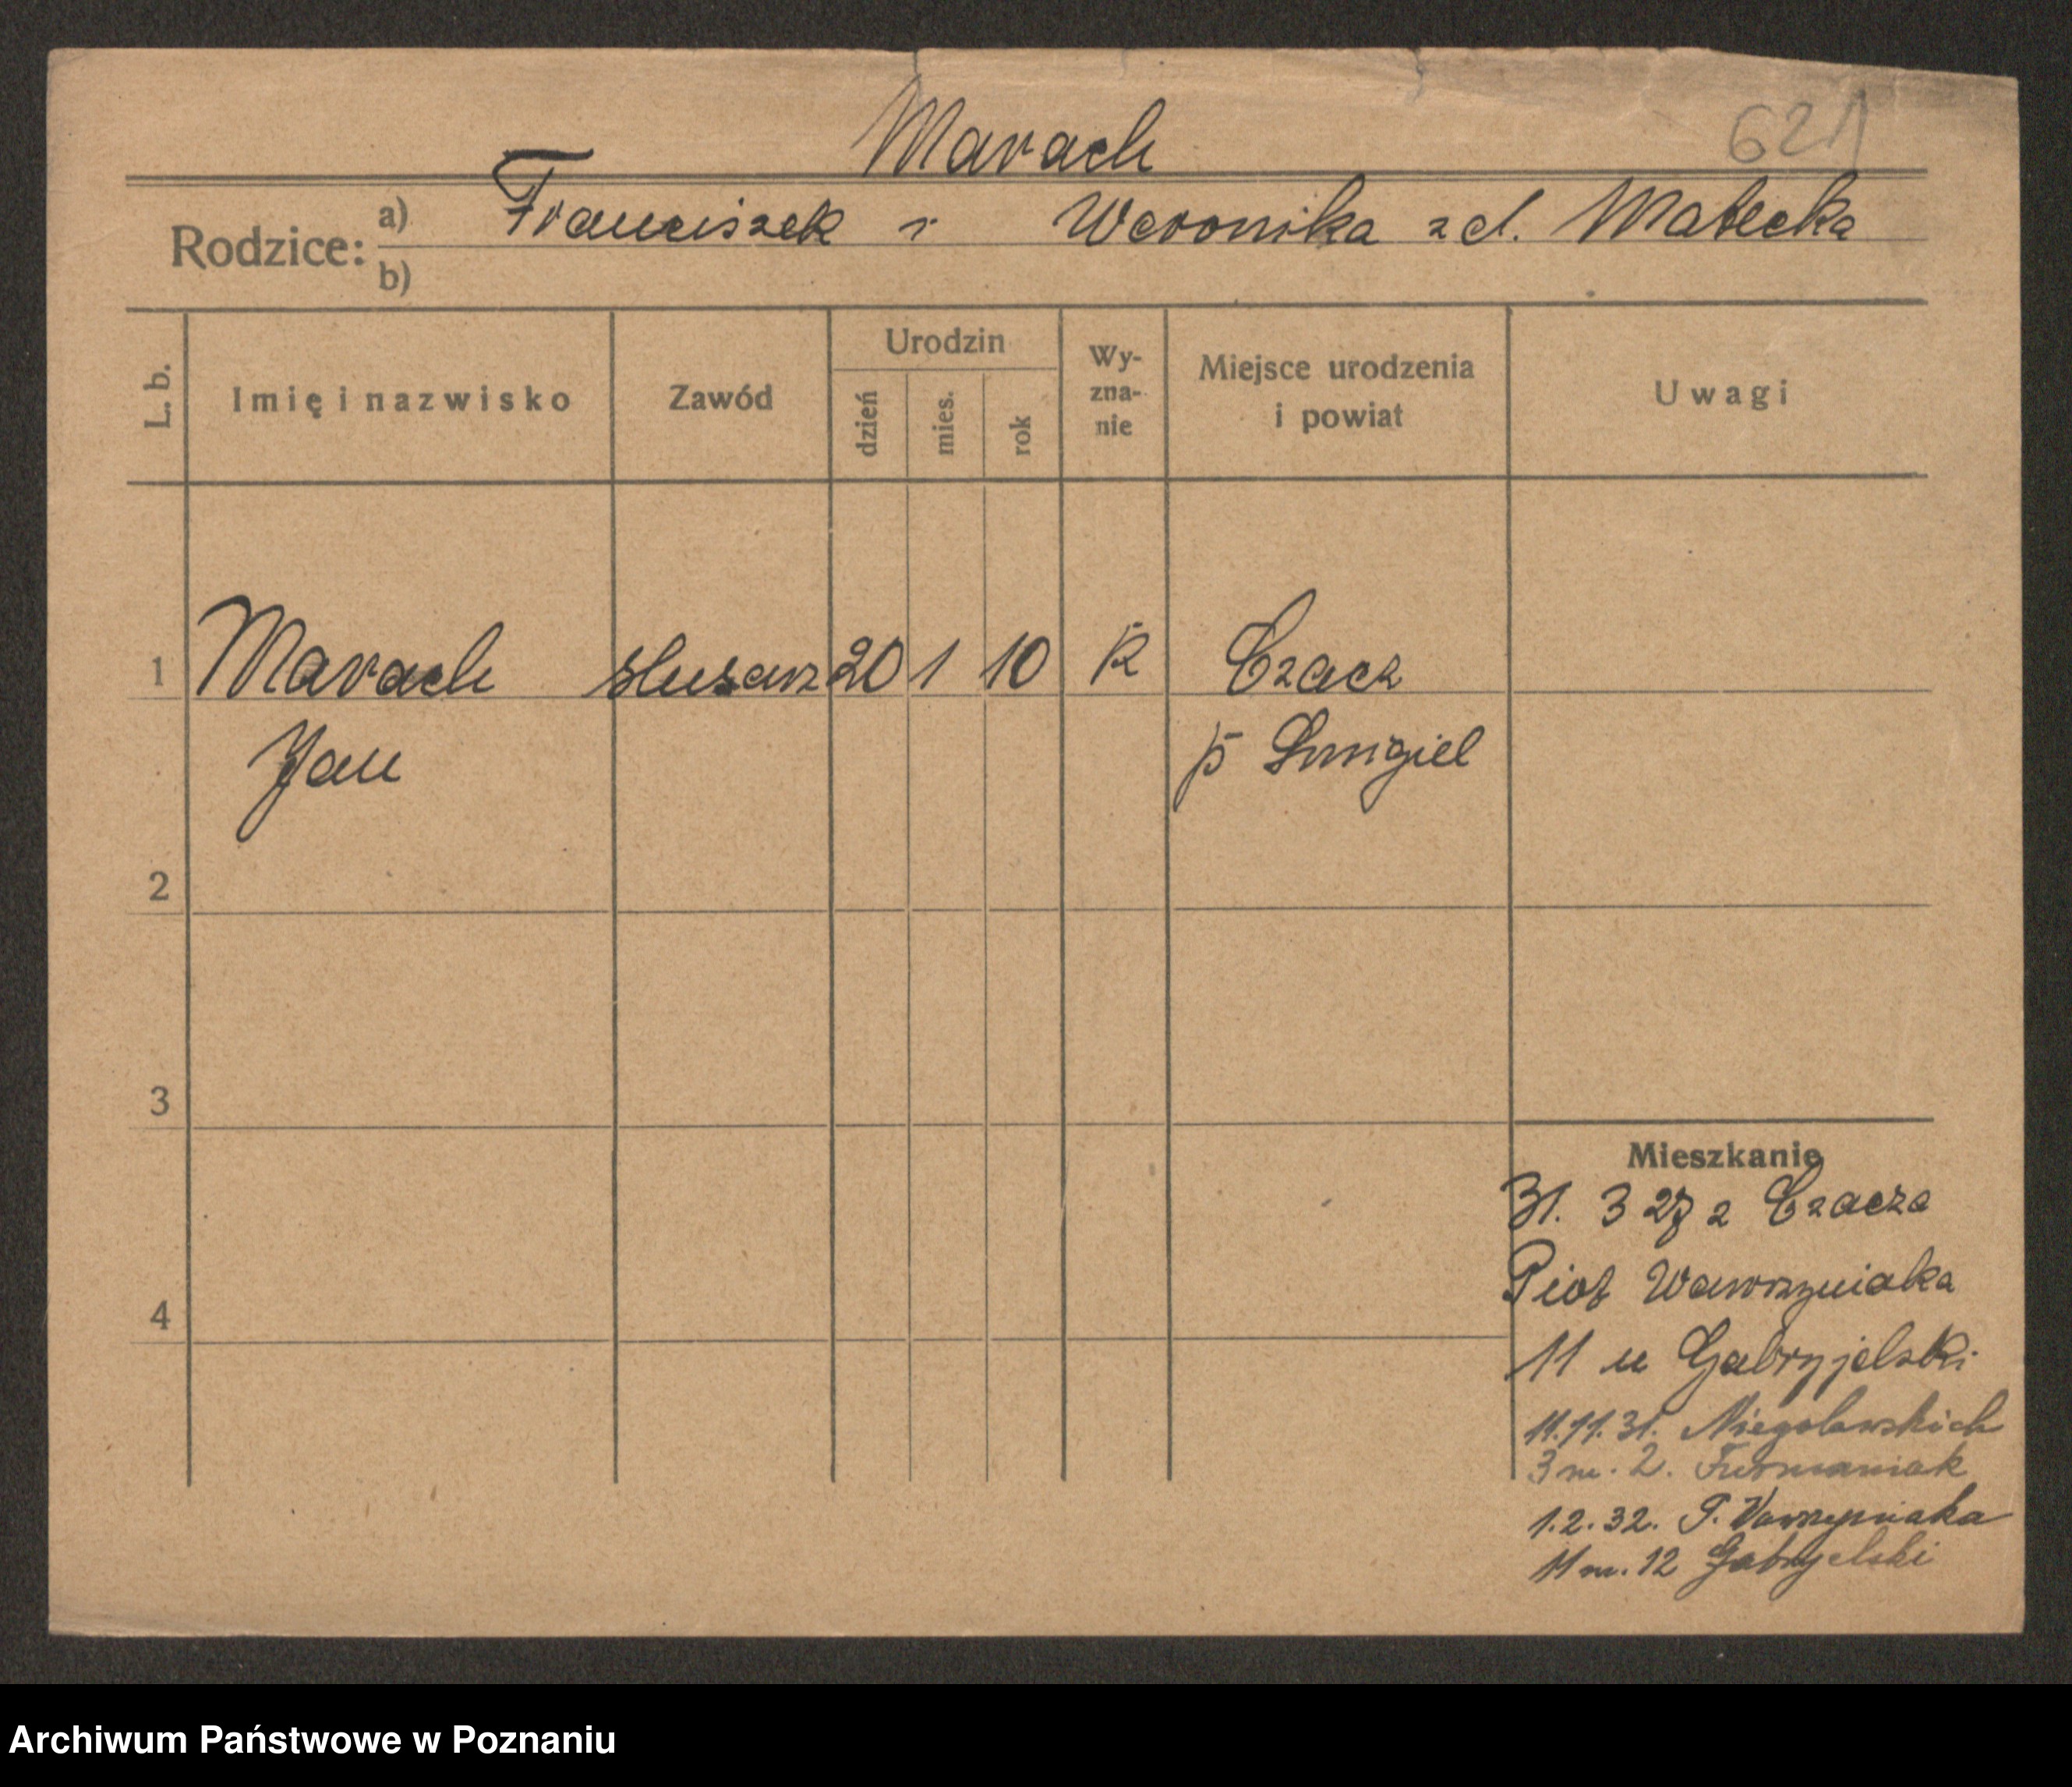 Marach
621
Rodzice: a) Franciszek i Weronika z d. Małecka
b)
L. b.
Imię i nazwisko
Zawód
Urodzin
dzień
mies.
rok
Wy-
zna-
nie
Miejsce urodzenia
i powiat
Uwagi
1 Marach ślusarz 20 1 10 k Czacz
Jan p Śmigiel
2
3
4
Mieszkanie
31. 3 27 z Czacza
Piotr Wawrzyniaka
11 u Gabryjelski
11.11.31. Niegolewskich
3 m. 2. Furmaniak
1.2.32. P. Wawrzyniaka
11 m. 12 Gabryelski
Archiwum Państwowe w Poznaniu